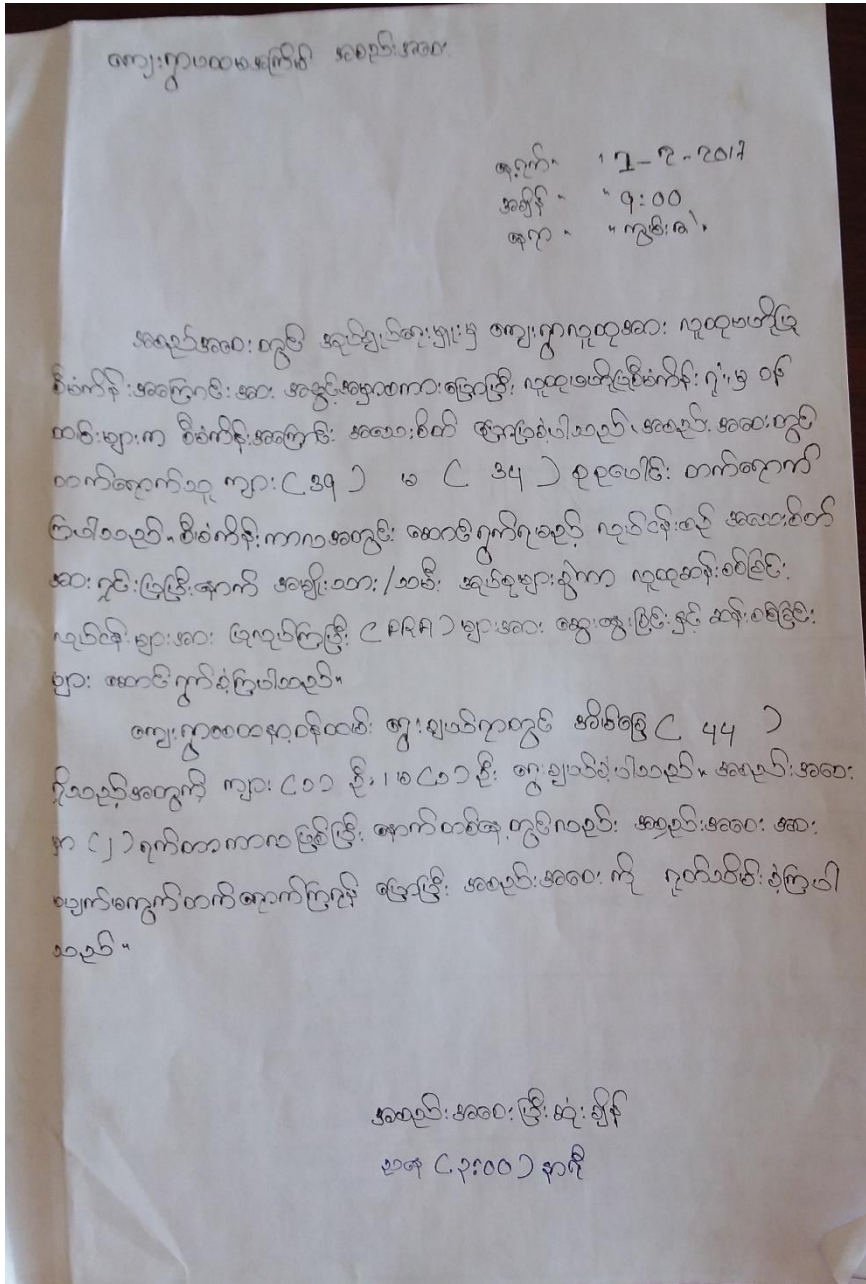 ကျေးရွာပထမအကြိမ် အစည်းအဝေး
နေ့ရက်။ ။ 1-2-2017
အချိန်။ ။ 9:00
နေရာ။ ။
အစည်းအဝေးတွင် အုပ်ချုပ်ရေးမှူးမှ ကျေးရွာလူထုအား လူထုဗဟိုပြု
စီမံကိန်းအကြောင်းအား အဖွင့်အမှာစကားပြောပြီး လူထုဗဟိုပြုစီမံကိန်းရုံးမှ ဝန်
ထမ်းများက စီမံကိန်းအကြောင်း အသေးစိတ် ပြောပြခဲ့ပါသည်။ အစည်းအဝေးတွင်
တက်ရောက်သူ ကျား ( 39 ) မ ( 34 ) စုစုပေါင်း တက်ရောက်
ကြပါသည်။ စီမံကိန်းကာလအတွင်း ဆောင်ရွက်ရမည့် လုပ်ငန်းစဉ် အသေးစိတ်
အား ရှင်းပြပြီးနောက် အမျိုးသား/သမီး အုပ်စုများခွဲကာ လူထုဆန်းစစ်ခြင်း
လုပ်ငန်းများအား ပြုလုပ်ကြပြီး ( PRA ) များအား ဆွေးနွေးခြင်းနှင့် ဆန်းစစ်ခြင်း
များ ဆောင်ရွက်ခဲ့ကြပါသည်။
ကျေးရွာစေတနာ့ဝန်ထမ်း ရွေးချယ်ရာတွင် အိမ်ခြေ ( 44 )
ရှိသည့်အတွက် ကျား (၁) ဦး၊ မ (၁) ဦး ရွေးချယ်ခဲ့ပါသည်။ အစည်းအဝေး
မှာ (၂) ရက်တာကာလဖြစ်ပြီး နောက်တစ်နေ့တွင်လည်း အစည်းအဝေး အား
မပျက်မကွက်တက်ရောက်ကြရန် ပြောပြီး အစည်းအဝေးကို ရုတ်သိမ်းခဲ့ကြပါ
သည်။
အစည်းအဝေးပြီးဆုံးချိန်
ညနေ ( ၃:00 ) နာရီ